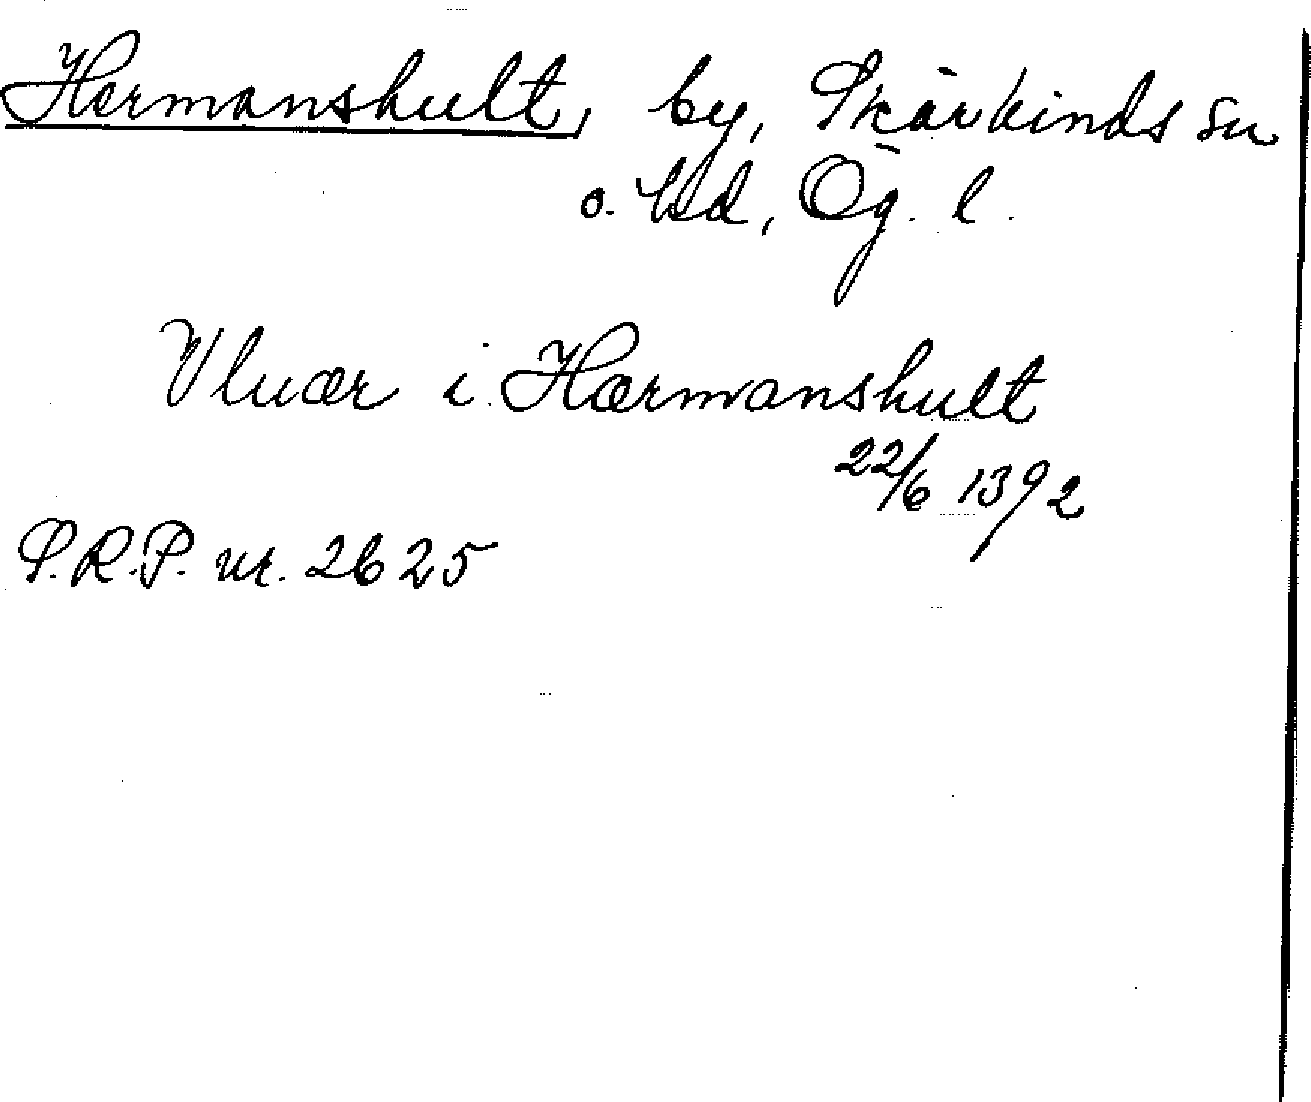 Hermanshult, by, Skärkinds sn
o. hd, Ög. l.
Vluær i Hærmanshult
22/6 1392
S.R.P. nr. 2625